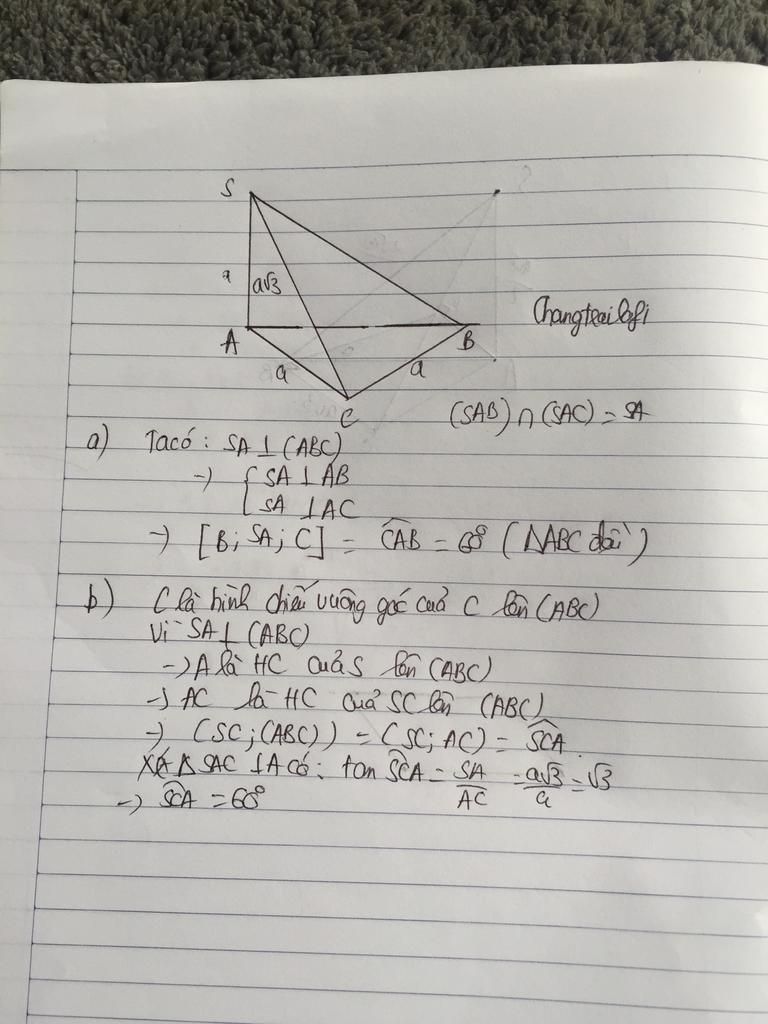 S
a
a√3
A
B
a
a
C
Changtrailofi
(SAB) ∩ (SAC) = SA
a) Ta có : SA ⊥ (ABC)
→ { SA ⊥ AB
SA ⊥ AC
→ [B; SA; C] = CAB = 60° (ΔABC đều)
b) C là hình chiếu vuông góc của C lên (ABC)
Vì SA ⊥ (ABC)
→ A là HC của S lên (ABC)
→ AC là HC của SC lên (ABC)
→ (SC; (ABC)) = (SC; AC) = SCA
Xét Δ SAC ⊥ A có: tan SCA = SA/AC = a√3/a = √3
→ SCA = 60°